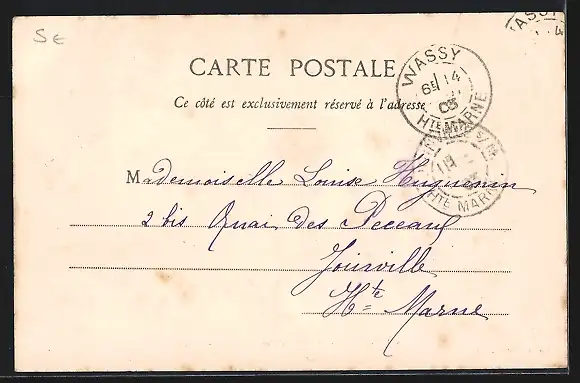 SE
CARTE POSTALE
Ce côté est exclusivement réservé à l'adresse
WASSY
6E 14
03
HTE MARNE
HTE MARNE
Mademoiselle Louise Huguenin
2 bis Quai des Peceaux
Joinville
Hte Marne